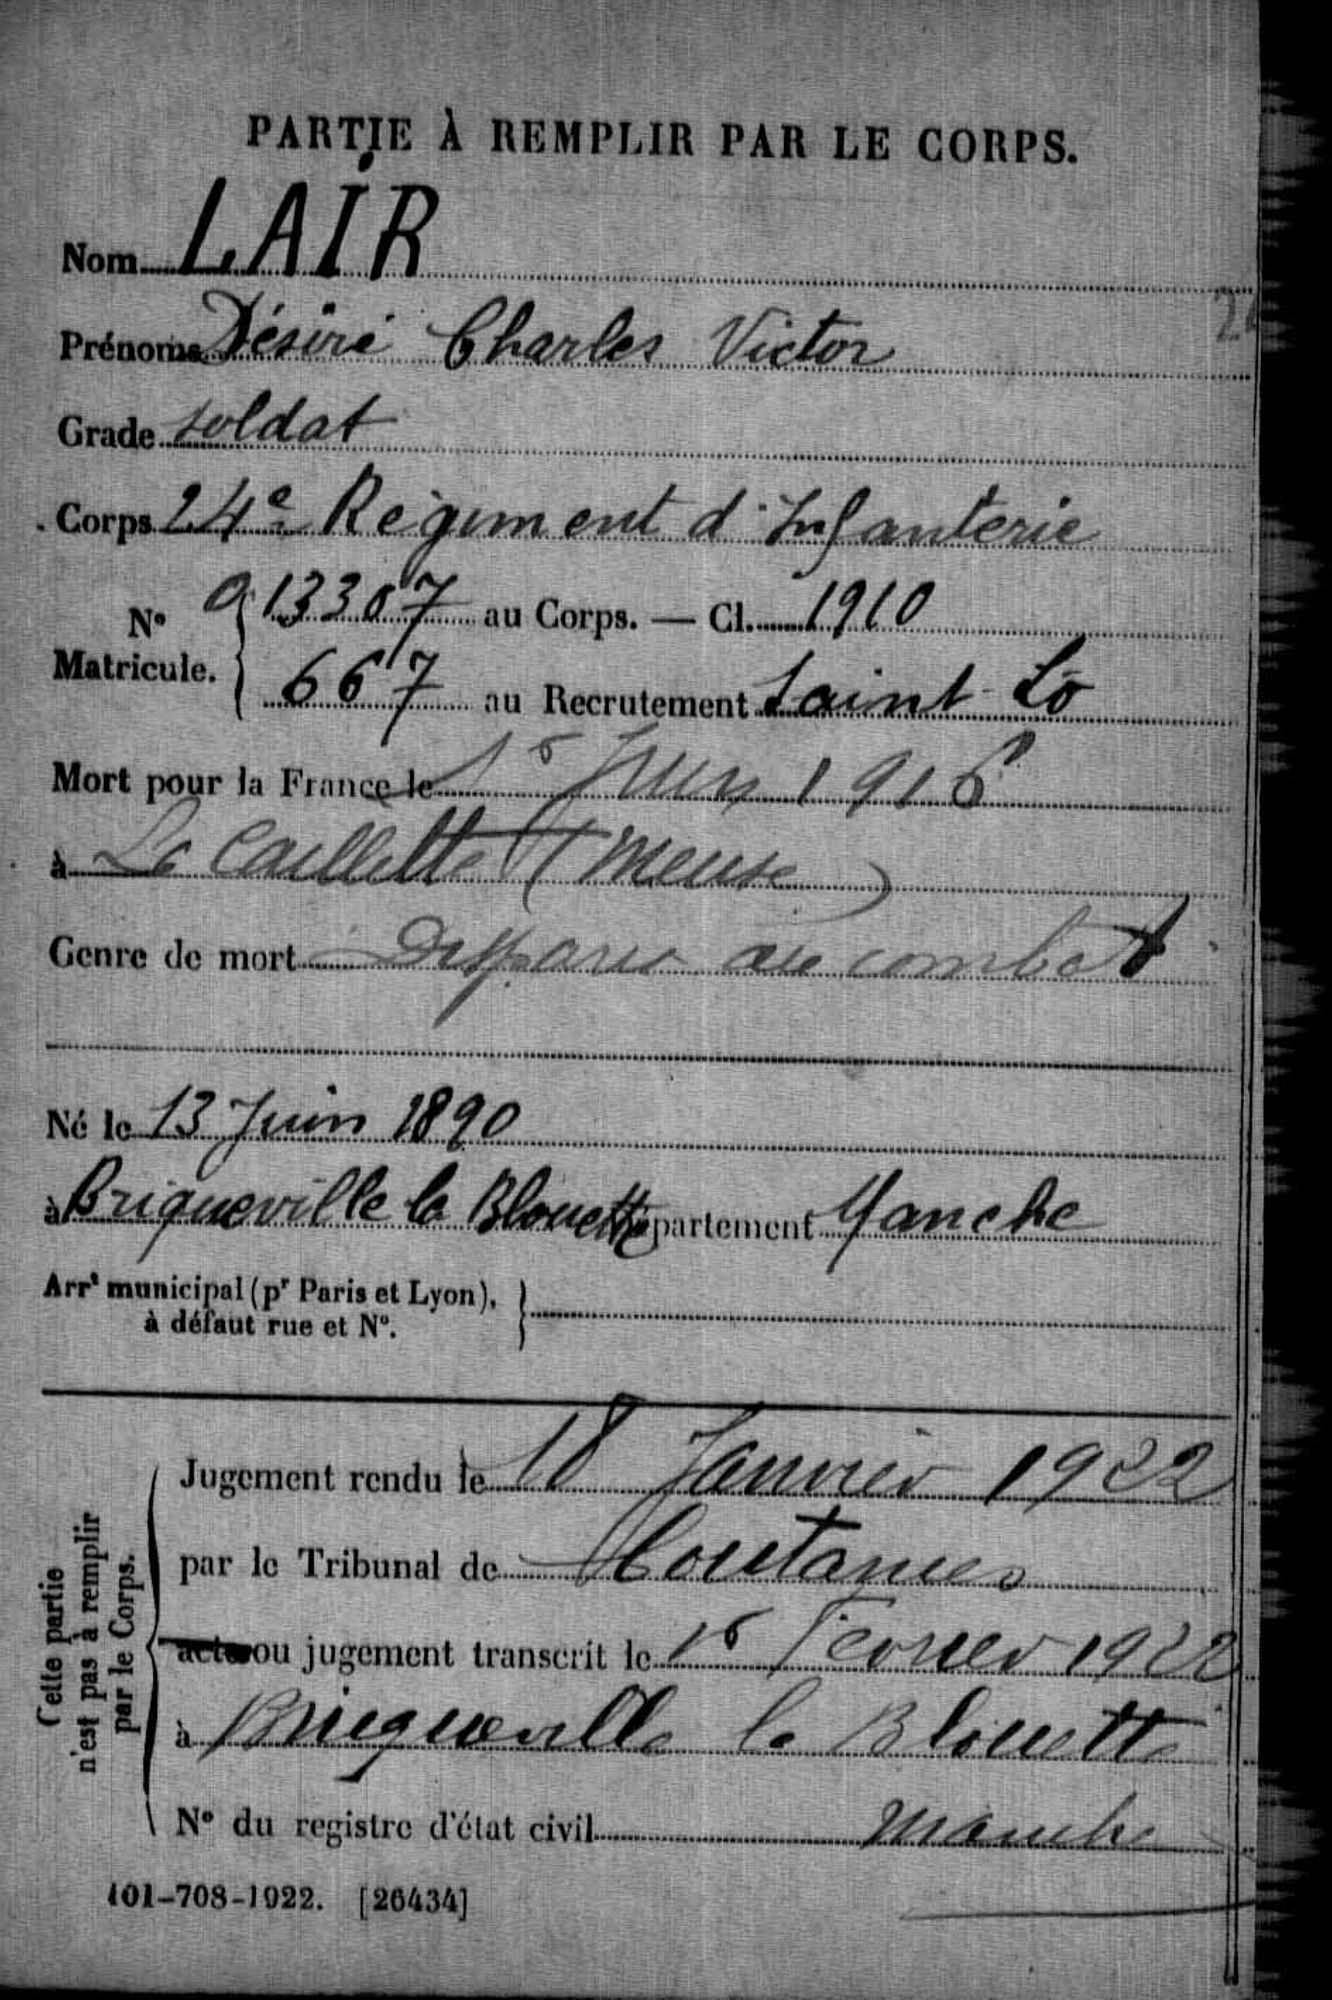 PARTIE À REMPLIR PAR LE CORPS.
Nom LAIR
Prénoms Désiré Charles Victor
Grade soldat
Corps 24e Régiment d'Infanterie
N° Matricule. { 13307 au Corps. — Cl. 1910
667 au Recrutement Saint-Lo
Mort pour la France le Juin 1916
à La Caillette (Meuse)
Genre de mort Disparu au combat
Né le 13 Juin 1890
à Briqueville la Blouette Département Manche
Arrt municipal (pr Paris et Lyon), à défaut rue et N°. }
Cette partie n'est pas à remplir par le Corps.
Jugement rendu le 18 Janvier 1922
par le Tribunal de Coutances
acte ou jugement transcrit le Février 1922
à Bricqueville la Blouette
N° du registre d'état civil Manche
101-708-1922. [26434]